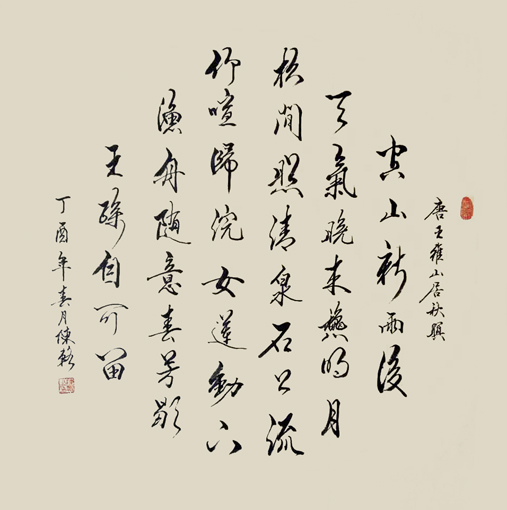 唐王維山居秋暝
空山新雨後
天氣晚来秋明月
松間照清泉石上流
竹喧歸浣女蓮動下
漁舟随意春芳歇
王孫自可留
丁酉年春月陳